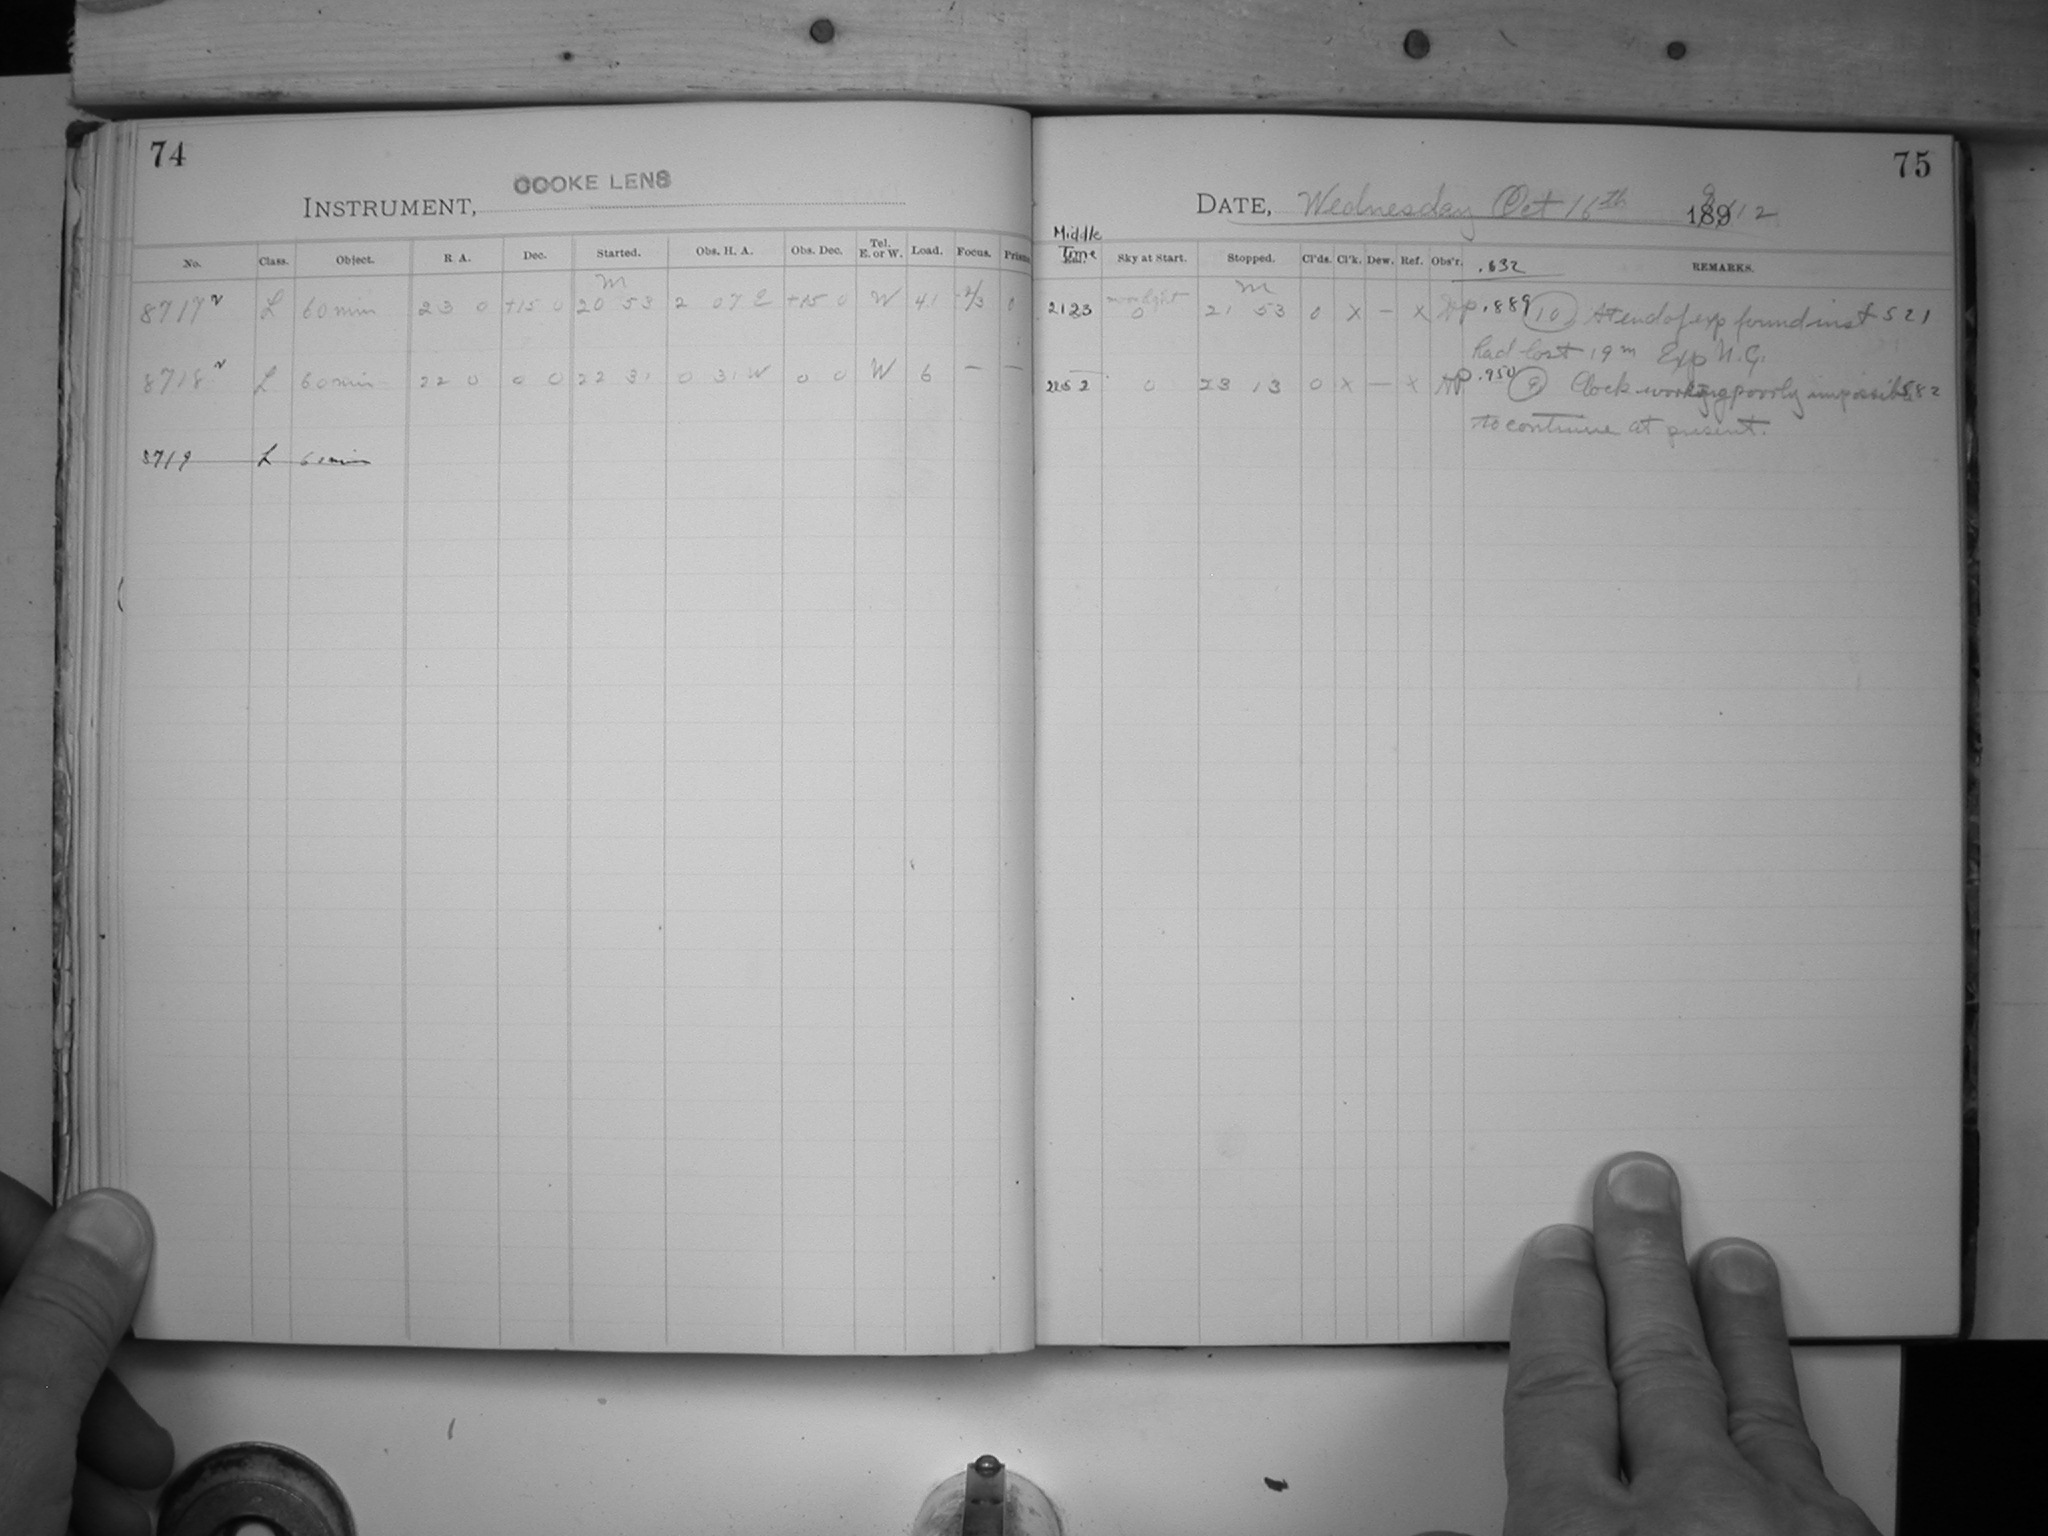 74
INSTRUMENT, COOKE LENS
No. Class. Object. R A. Dec. Started. Obs. H. A. Obs. Dec. Tel. E. or W. Load. Focus. Prism
m
8717 L 60 min 23 0 +15 0 20 53 2 07 E +15 0 W 4.1 0
8718 L 60 min 22 0 0 0 22 31 0 31 W 0 0 W 6 — —
8719 L 60 min
75
DATE, Wednesday Oct 16th 1912
Middle Time Sky at Start. Stopped. Cl'ds. Cl'k. Dew. Ref. Obs'r. .632 REMARKS.
m
2123 moonlight 0 21 53 0 X — X .889 10 At end of exp found inst 521
had lost 19m Exp N.G.
2252 0 23 13 0 X — X .950 9 Clock working poorly impossible 582
to continue at present.